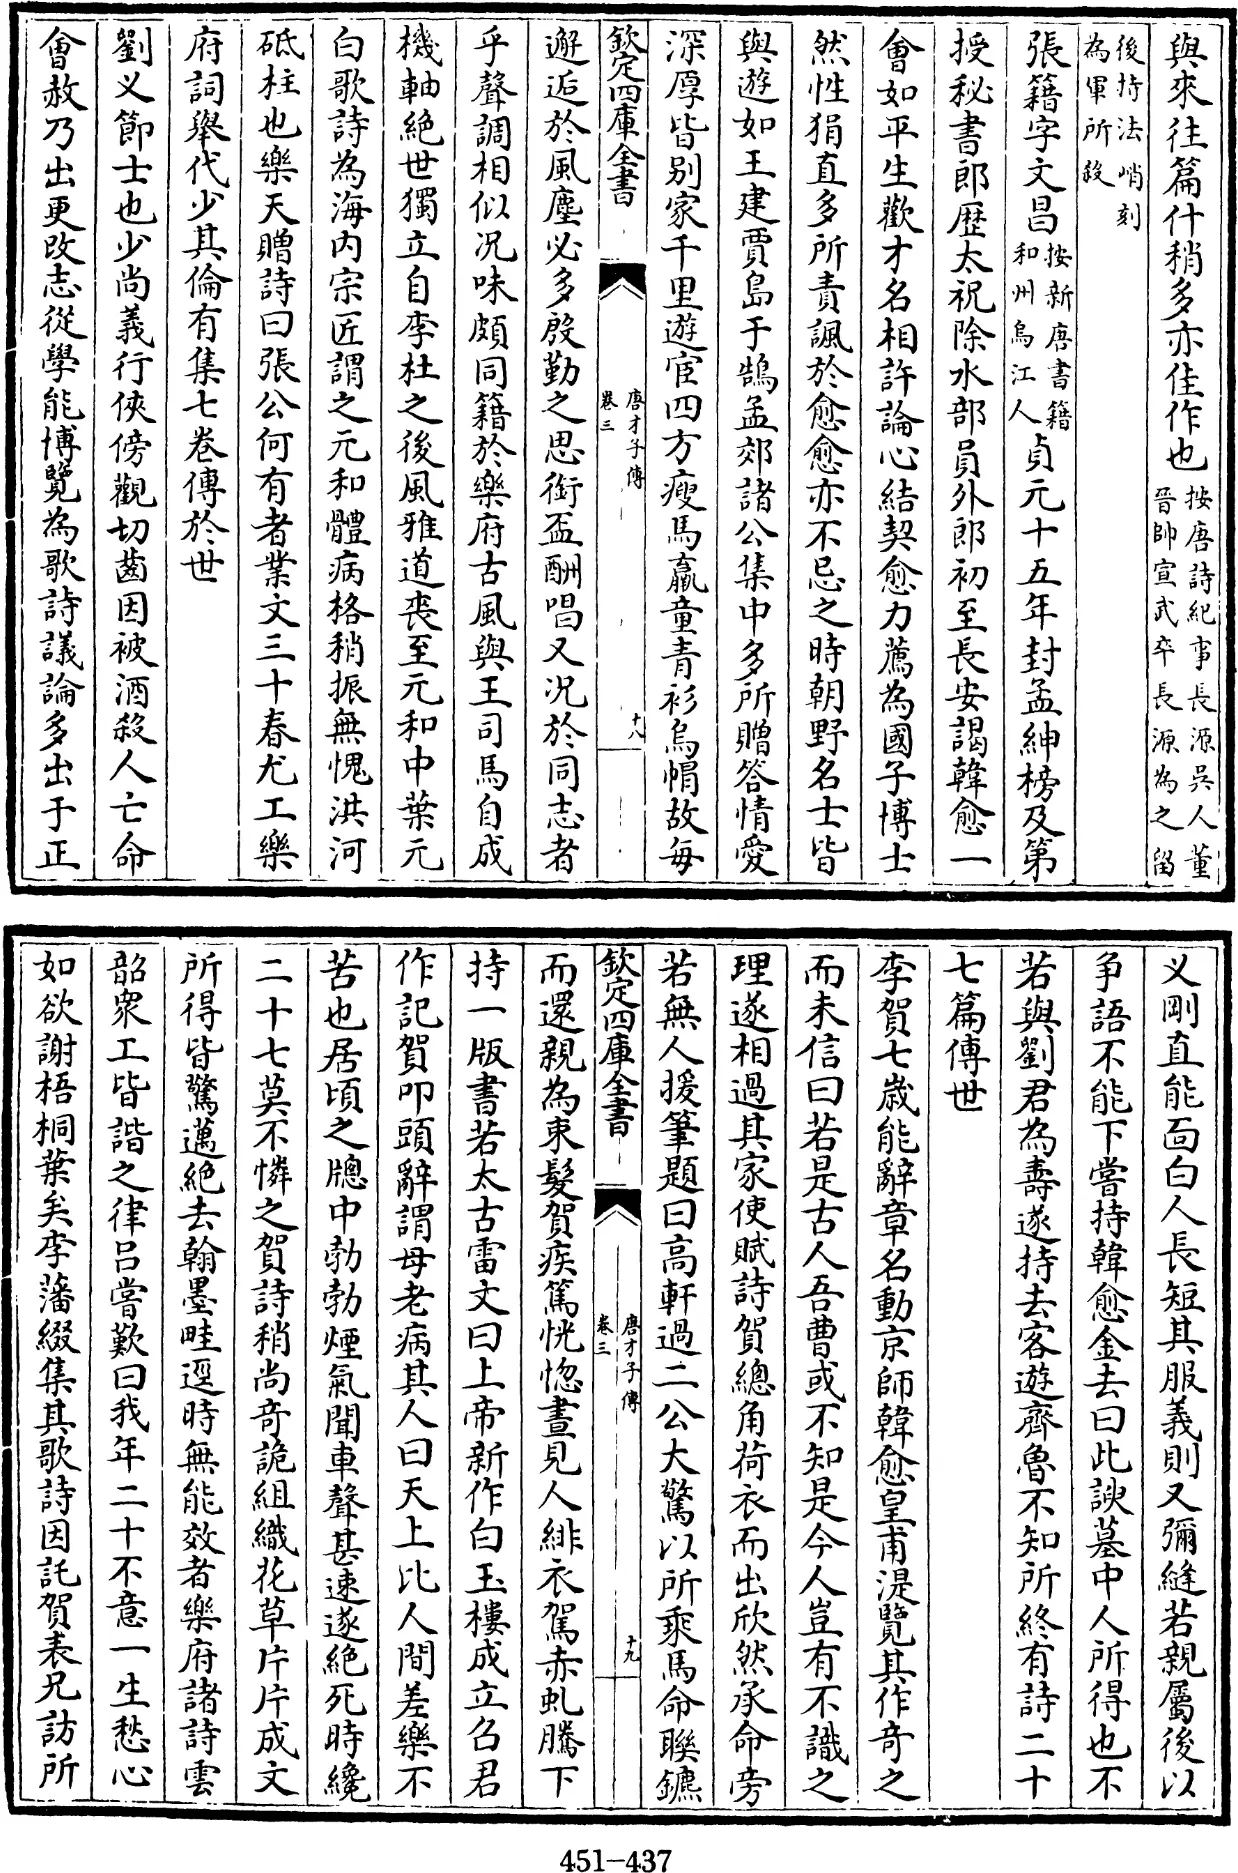 與來往篇什稍多亦佳作也按唐詩紀事長源吳人董
晉帥宣武卒長源為之留
後持法峭刻
為軍所殺
張籍字文昌按新唐書籍
和州烏江人貞元十五年封孟紳榜及第
授秘書郎歴太祝除水部員外郎初至長安謁韓愈一
會如平生歡才名相許論心結契愈力薦為國子博士
然性狷直多所責諷於愈愈亦不忌之時朝野名士皆
與遊如王建賈島于鵠孟郊諸公集中多所贈答情愛
深厚皆别家千里遊宦四方瘦馬羸童青衫烏帽故每
欽定四庫全書
唐才子傳
卷三
十八
邂逅於風塵必多殷勤之思銜盃酬唱又况於同志者
乎聲調相似况味頗同籍於樂府古風與王司馬自成
機軸絶世獨立自李杜之後風雅道喪至元和中葉元
白歌詩為海内宗匠謂之元和體病格稍振無愧洪河
砥柱也樂天贈詩曰張公何有者業文三十春尤工樂
府詞舉代少其倫有集七卷傳於世
劉义節士也少尚義行俠傍觀切齒因被酒殺人亡命
會赦乃出更改志從學能博覽為歌詩議論多出于正
义剛直能面白人長短其服義則又彌縫若親屬後以
争語不能下嘗持韓愈金去曰此諛墓中人所得也不
若與劉君為壽遂持去客遊齊魯不知所終有詩二十
七篇傳世
李賀七歲能辭章名動京師韓愈皇甫湜覽其作奇之
而未信曰若是古人吾曹或不知是今人豈有不識之
理遂相過其家使賦詩賀總角荷衣而出欣然承命旁
若無人援筆題曰高軒過二公大驚以所乘馬命聯鑣
欽定四庫全書
唐才子傳
卷三
十九
而還親為束髮賀疾篤恍惚晝見人緋衣駕赤虬騰下
持一版書若太古雷文曰上帝新作白玉樓成立召君
作記賀叩頭辭謂母老病其人曰天上比人間差樂不
苦也居頃之牕中勃勃煙氣聞車聲甚速遂絶死時纔
二十七莫不憐之賀詩稍尚奇詭組織花草片片成文
所得皆驚邁絶去翰墨畦逕時無能效者樂府諸詩雲
韶衆工皆諧之律吕嘗歎曰我年二十不意一生愁心
如欲謝梧桐葉矣李藩綴集其歌詩因託賀表兄訪所
451-437